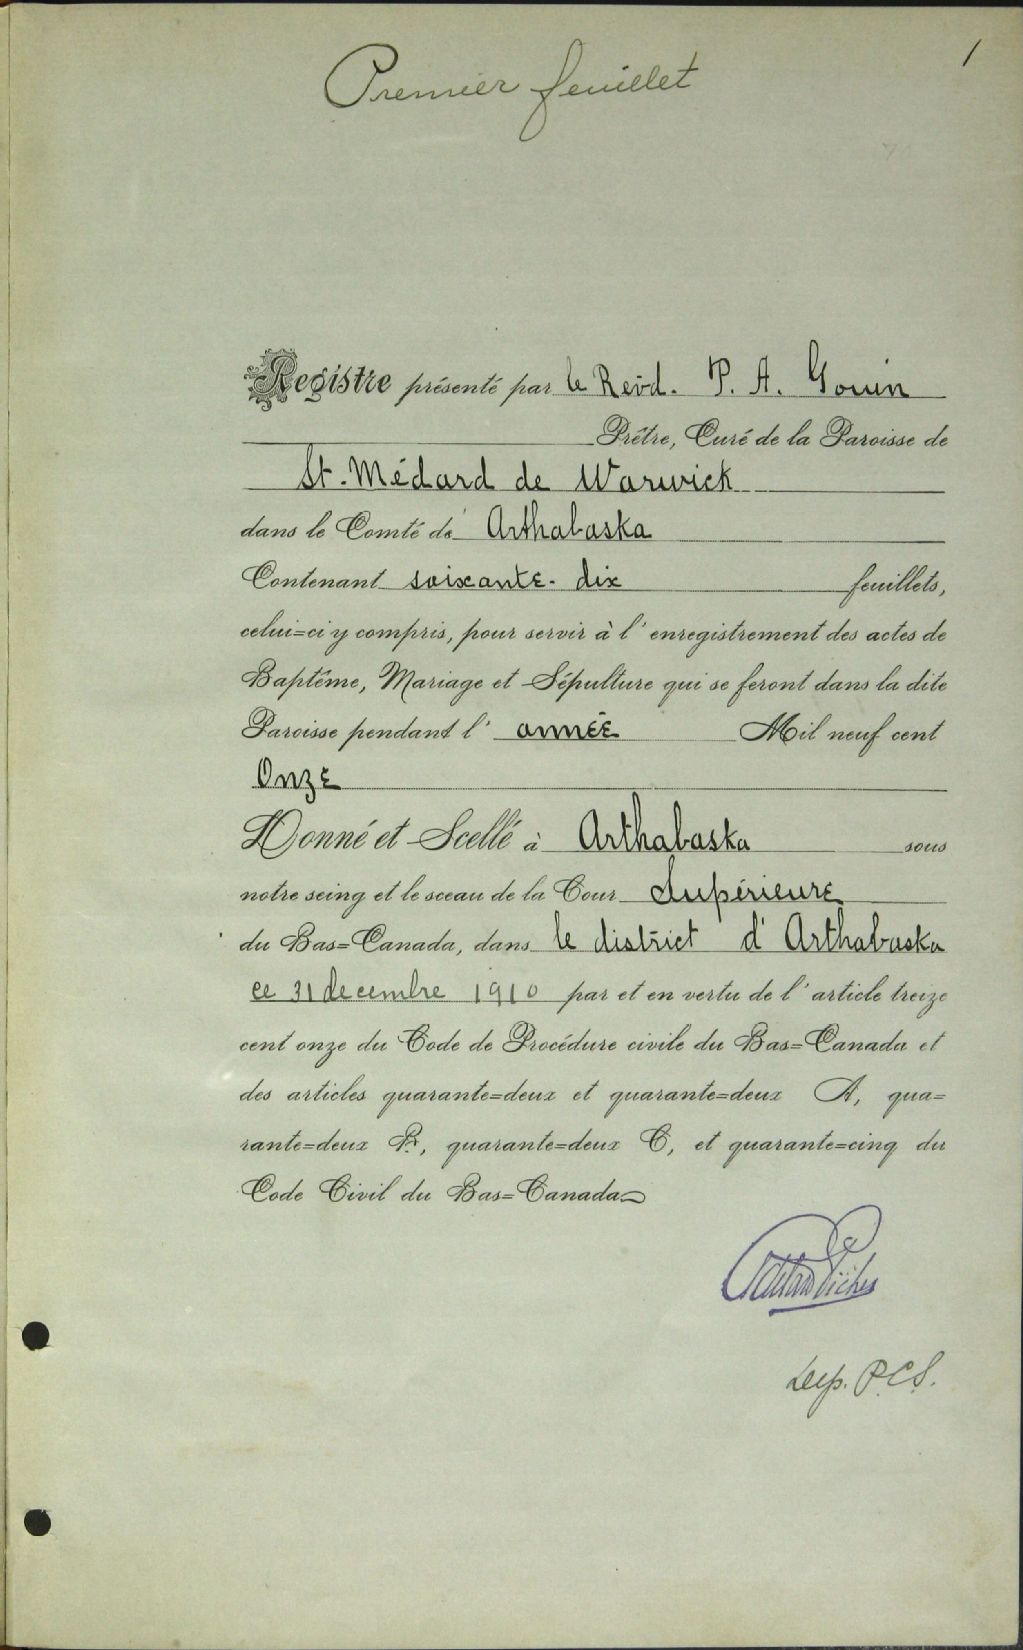 1
Premier feuillet
Registre présenté par le Revd. P. A. Gouin
Prêtre, Curé de la Paroisse de
St. Médard de Warwick
dans le Comté de Arthabaska
Contenant soixante-dix feuillets,
celui=ci y compris, pour servir à l'enregistrement des actes de
Baptême, Mariage et Sépulture qui se feront dans la dite
Paroisse pendant l' année Mil neuf cent
Onze
Donné et Scellé à Arthabaska sous
notre seing et le sceau de la Cour Supérieure
du Bas=Canada, dans le district d'Arthabaska
ce 31 decembre 1910 par et en vertu de l'article treize
cent onze du Code de Procédure civile du Bas=Canada et
des articles quarante=deux et quarante=deux A, qua=
rante=deux B, quarante=deux C, et quarante=cinq du
Code Civil du Bas=Canada
Dep. P.C.S.